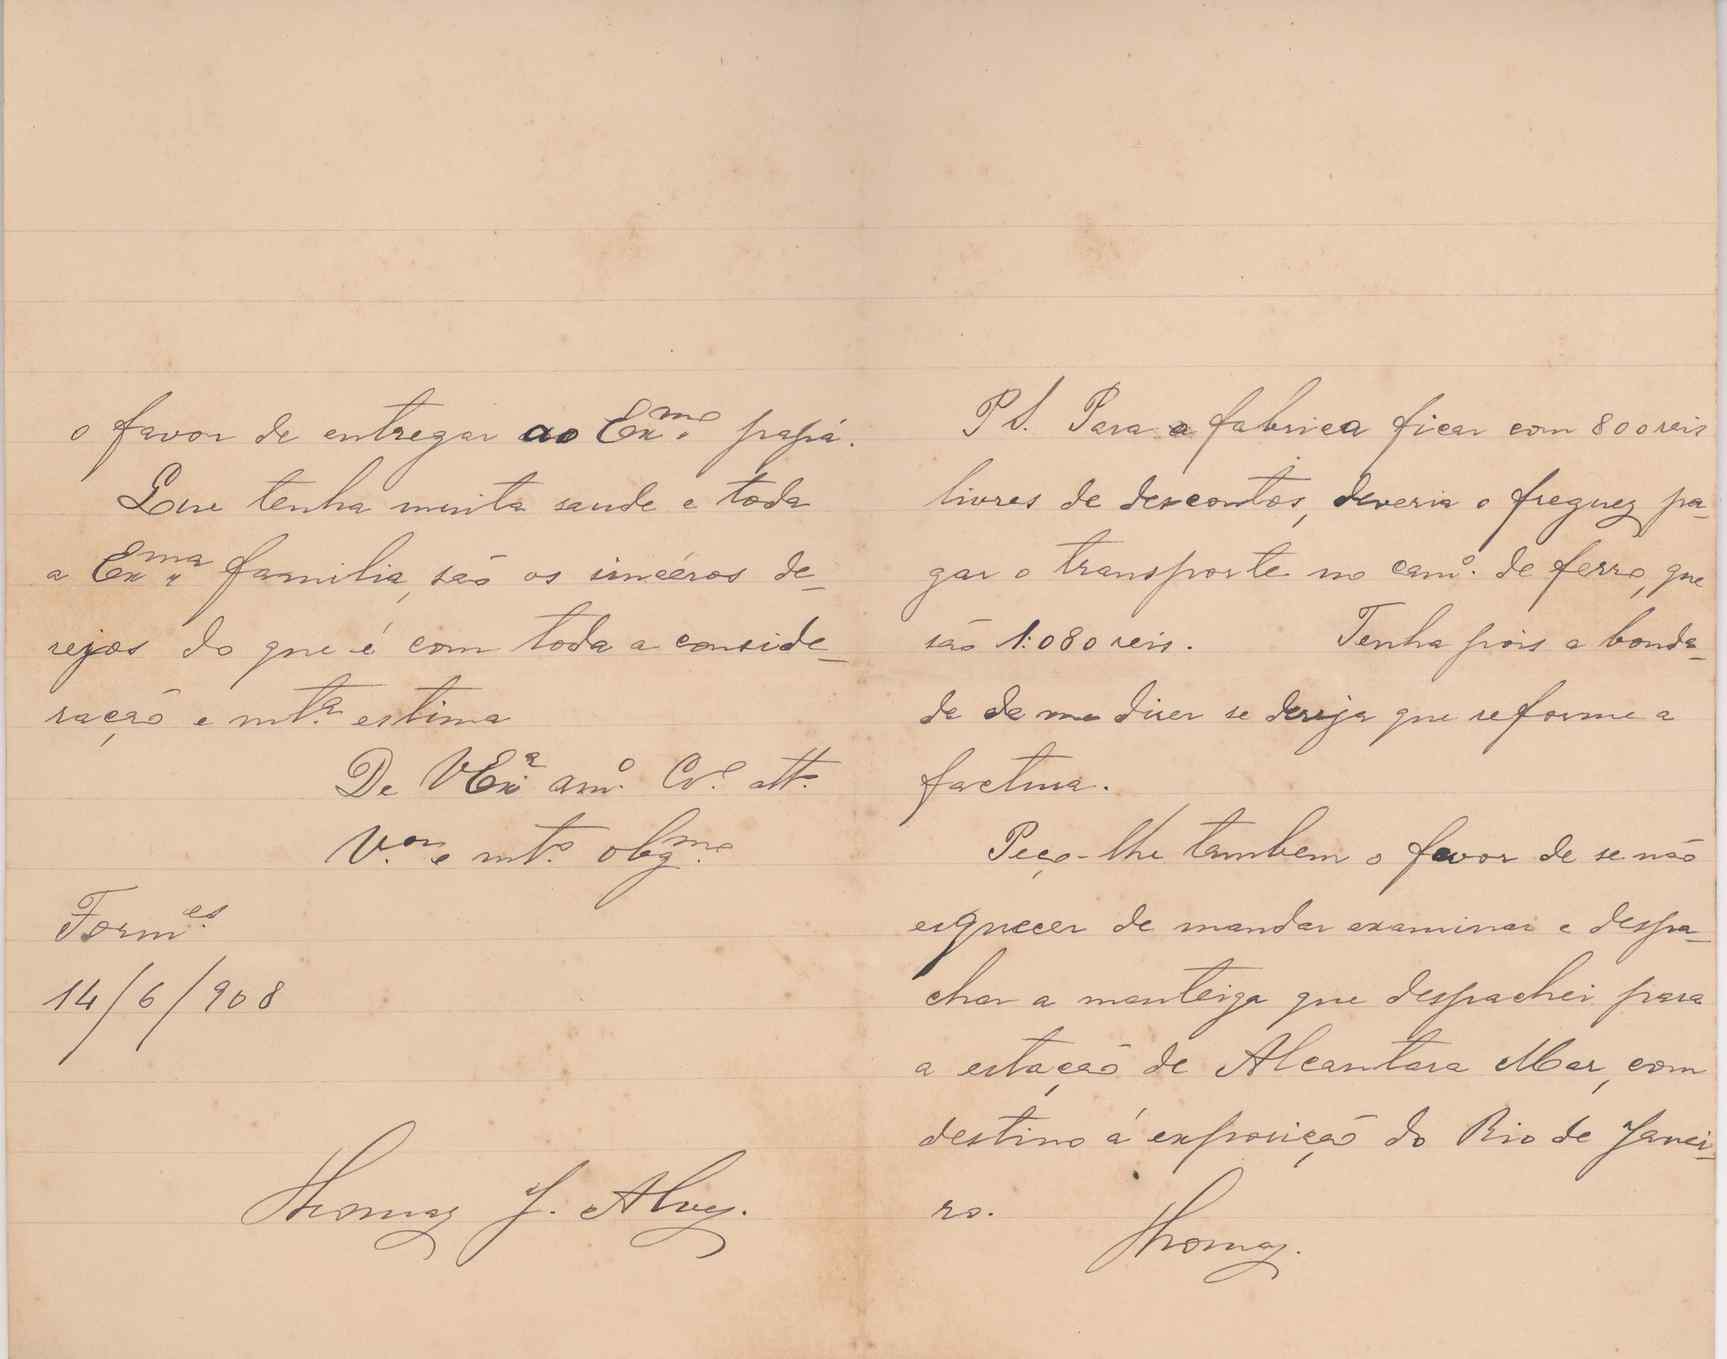 o favor de entregar ao Ex.mo papá.
Que tenha muita saude e toda
a Ex.ma familia, são os sincéros de-
sejos do que é com toda a conside-
ração e mt.a estima
De V Ex.a am.o Cr.o att.o
V.or e mt.o obg.mo
Form.es
14/6/908
Thomaz J. Alvez.
P S. Para a fabrica ficar com 800 reis
livres de descontos, deveria o freguez pa-
gar o transporte no cam.o de ferro, que
são 1:080 reis. Tenha pois a bonda-
de de me dizer se deseja que reforme a
factura.
Peço-lhe tambem o favor de se não
esquecer de mandar examinar e despa-
char a manteiga que despachei para
a estação de Alcantara Mar, com
destino á exposição do Rio de Janei-
ro.
Thomaz.